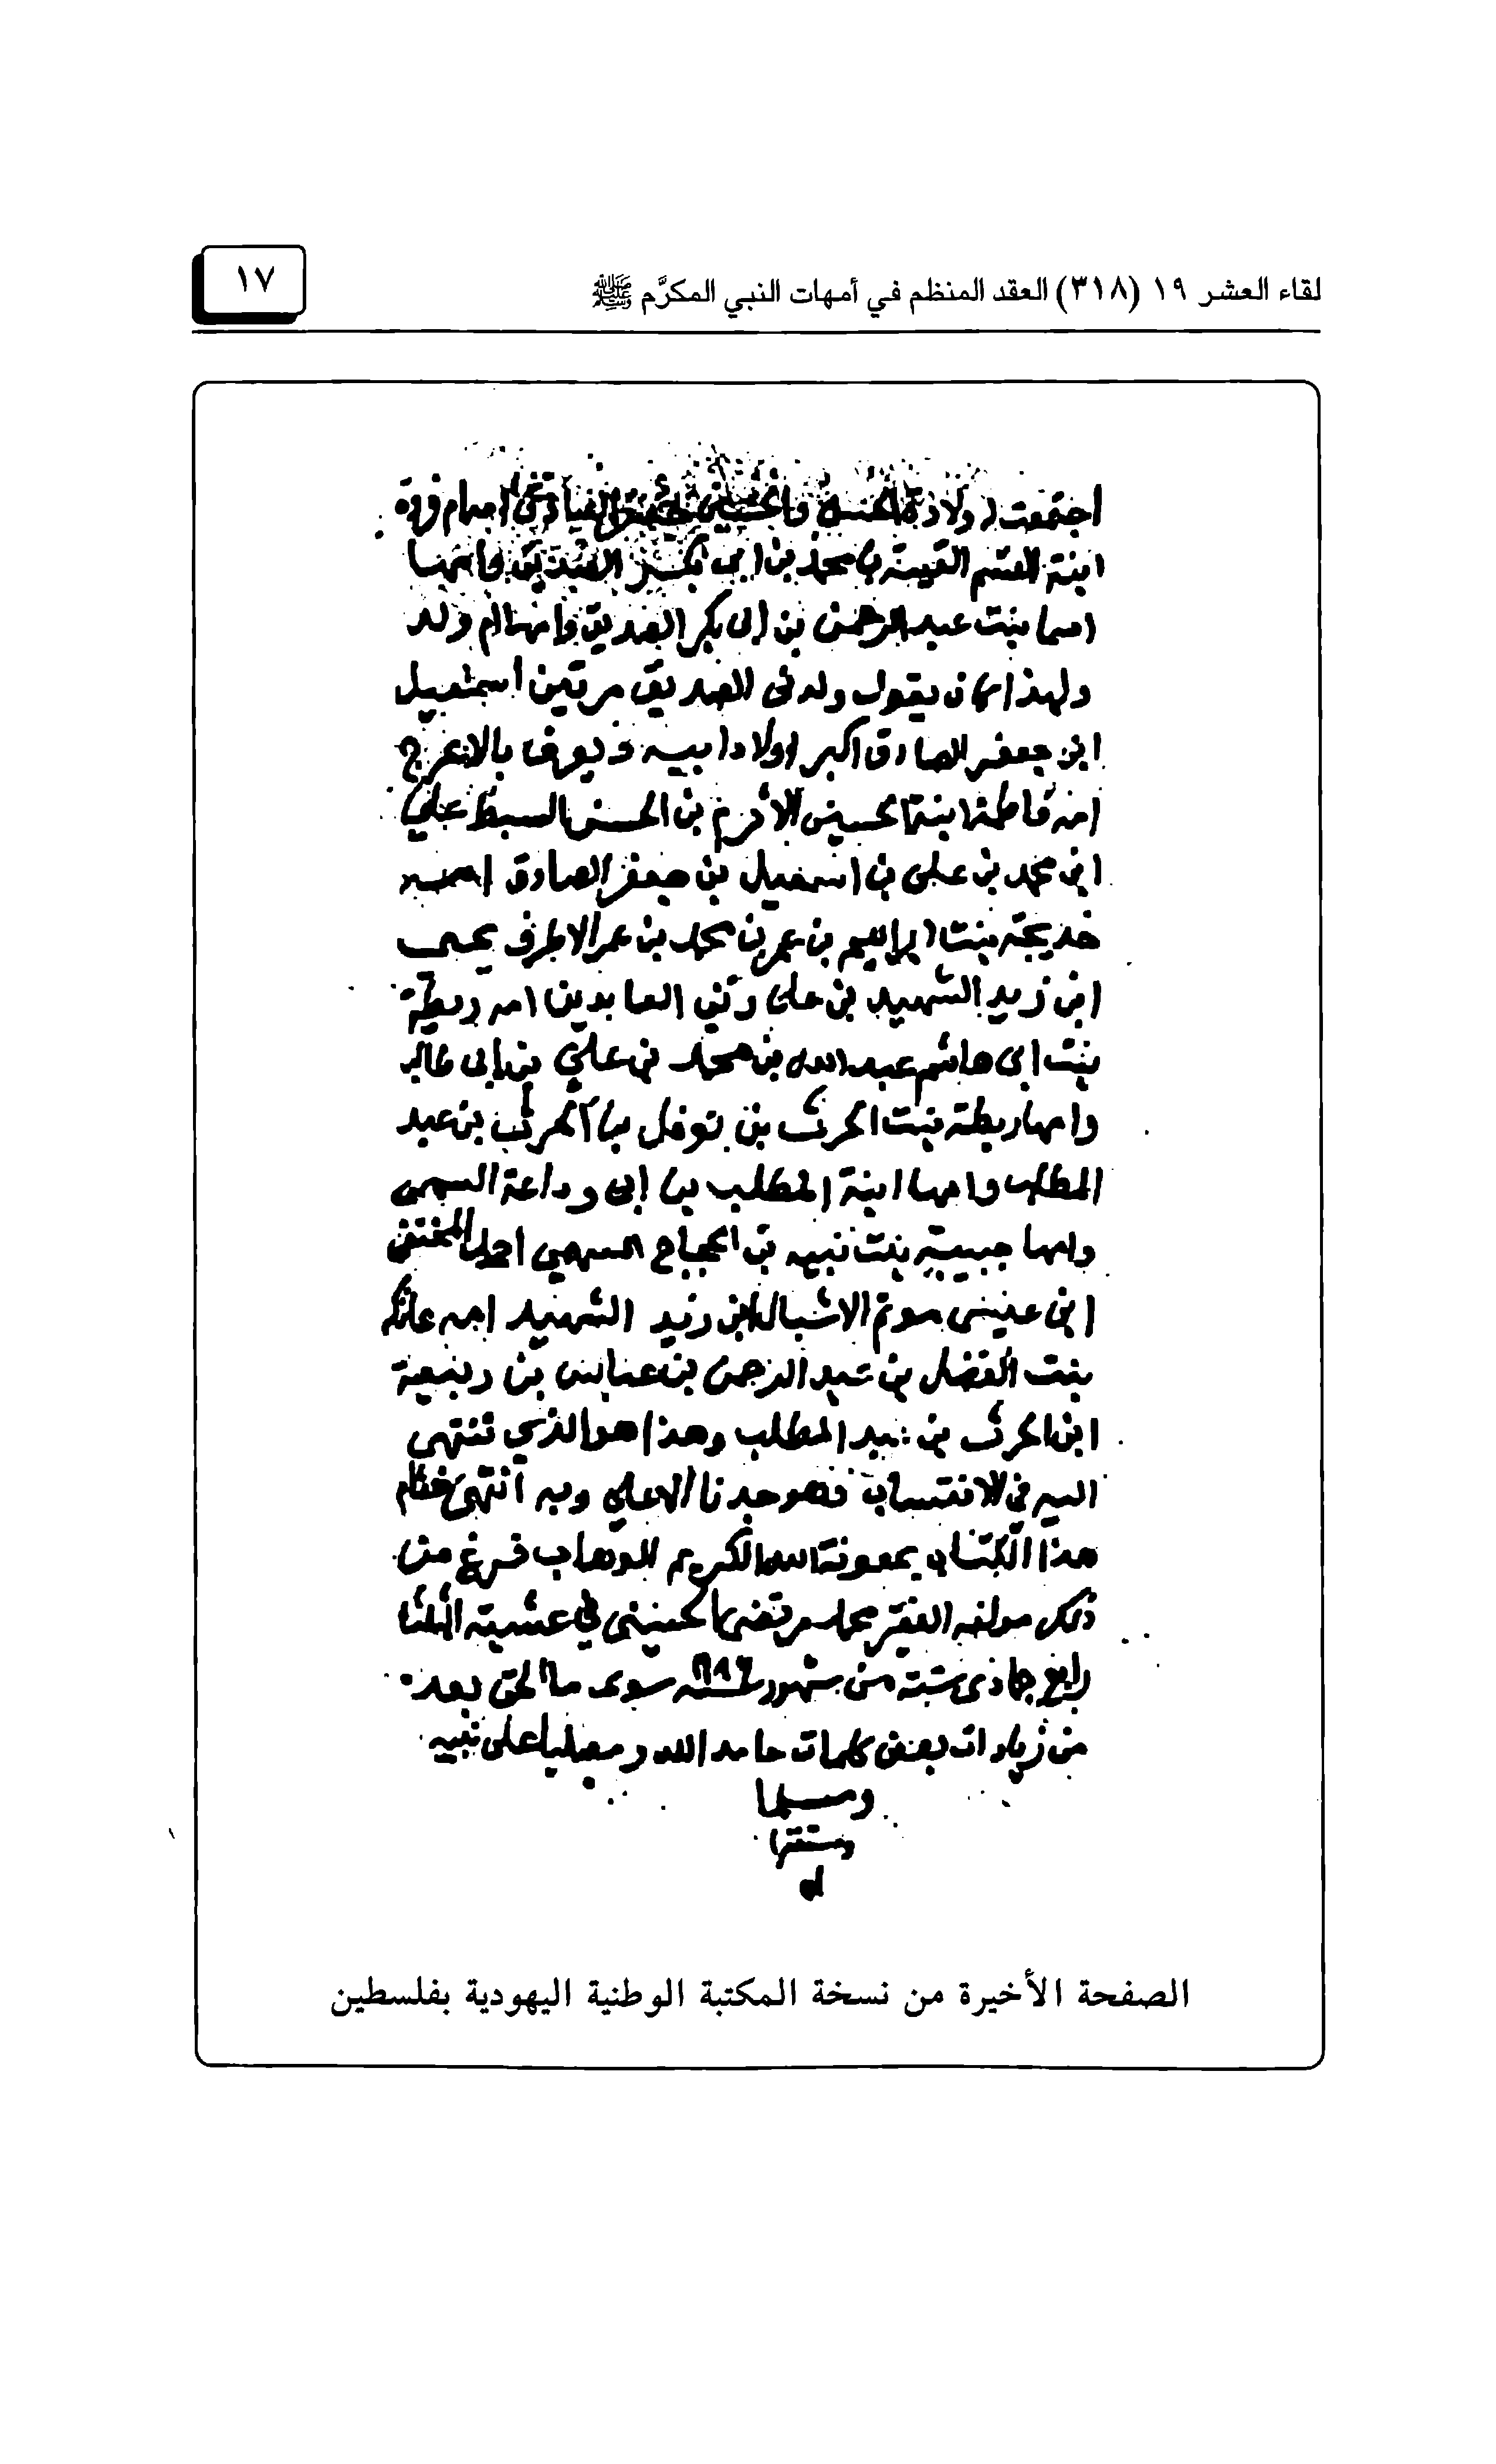 لقاء العشر ١٩ (٣١٨) العقد المنظم في أمهات النبي المكرَّم ﷺ
١٧
اجتمعت ولادة الحسن والحسين جعفر الصادق امه ام فروة
ابنة القسم الفقيه بن محمد بن ابى بكر الصديق وامها
اسما بنت عبد الرحمن بن ابى بكر الصديق وامها ام ولد
ولهذا كان يقول ولدنى الصديق مرتين اسمعيل
ابن جعفر الصادق اكبر اولاد ابيه ويعرف بالاعرج
امه فاطمة ابنة الحسين الاثرم بن الحسن السبط علي
ابن محمد بن على بن اسمعيل بن جعفر الصادق امه
خديجة بنت ابراهيم بن عمر بن محمد بن عمر الاطرف يحيى
ابن زيد الشهيد بن على زين العابدين امه ريطة
بنت ابى هاشم عبد الله بن محمد بن علي بن ابى طالب
وامها ريطة بنت الحرث بن نوفل بن الحرث بن عبد
المطلب وامها ابنة المطلب بن ابى وداعة السهمى
وامها حبيبة بنت نبيه بن الحجاج السهمي احمد المختفى
ابن عيسى موتم الاشبال ابن زيد الشهيد امه عاتكة
بنت الفضل بن عبد الرحمن بن عباس بن ربيعة
ابن الحرث بن عبد المطلب وهذا هو الذي تنتهى
اليه في الانتساب فهو جدنا الاعلى وبه انتهى ختام
هذا الكتاب بمعونة الله الكريم الوهاب فرغ من
ذلك مولفه الفقير محمد مرتضى الحسينى في عشية الثلثا
رابع جمادى ستة من شهور سنة ١١٨٢ سوى ما الحق بعده
من زيادات بعض كلمات حامدا لله ومصليا على نبيه
ومسلما
الصفحة الأخيرة من نسخة المكتبة الوطنية اليهودية بفلسطين